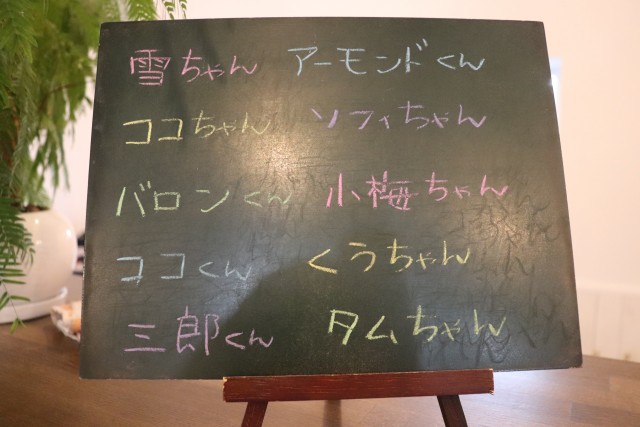 雪ちゃん アーモンドくん
ココちゃん ソフィちゃん
バロンくん 小梅ちゃん
ココくん くうちゃん
三郎くん タムちゃん